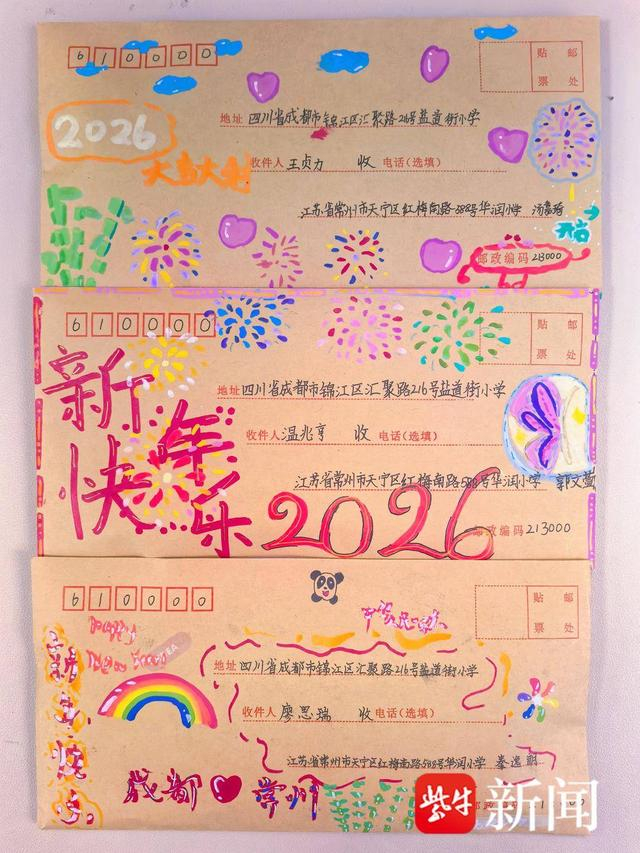 610000
贴 邮
票 处
地址 四川省成都市锦江区汇聚路216号盐道街小学
2026
收件人 王贞力 收 电话(选填)
江苏省常州市天宁区红梅南路588号华润小学
开启
邮政编码 213000
610000
贴 邮
票 处
新年
快乐
地址 四川省成都市锦江区汇聚路216号盐道街小学
收件人 温兆亨 收 电话(选填)
江苏省常州市天宁区红梅南路588号华润小学 郭文萱
2026
邮政编码 213000
610000
贴 邮
票 处
新年快乐
Happy
New Year
地址 四川省成都市锦江区汇聚路216号盐道街小学
收件人 廖思瑞 收 电话(选填)
江苏省常州市天宁区红梅南路588号华润小学
成都 常州
2026
紫牛新闻